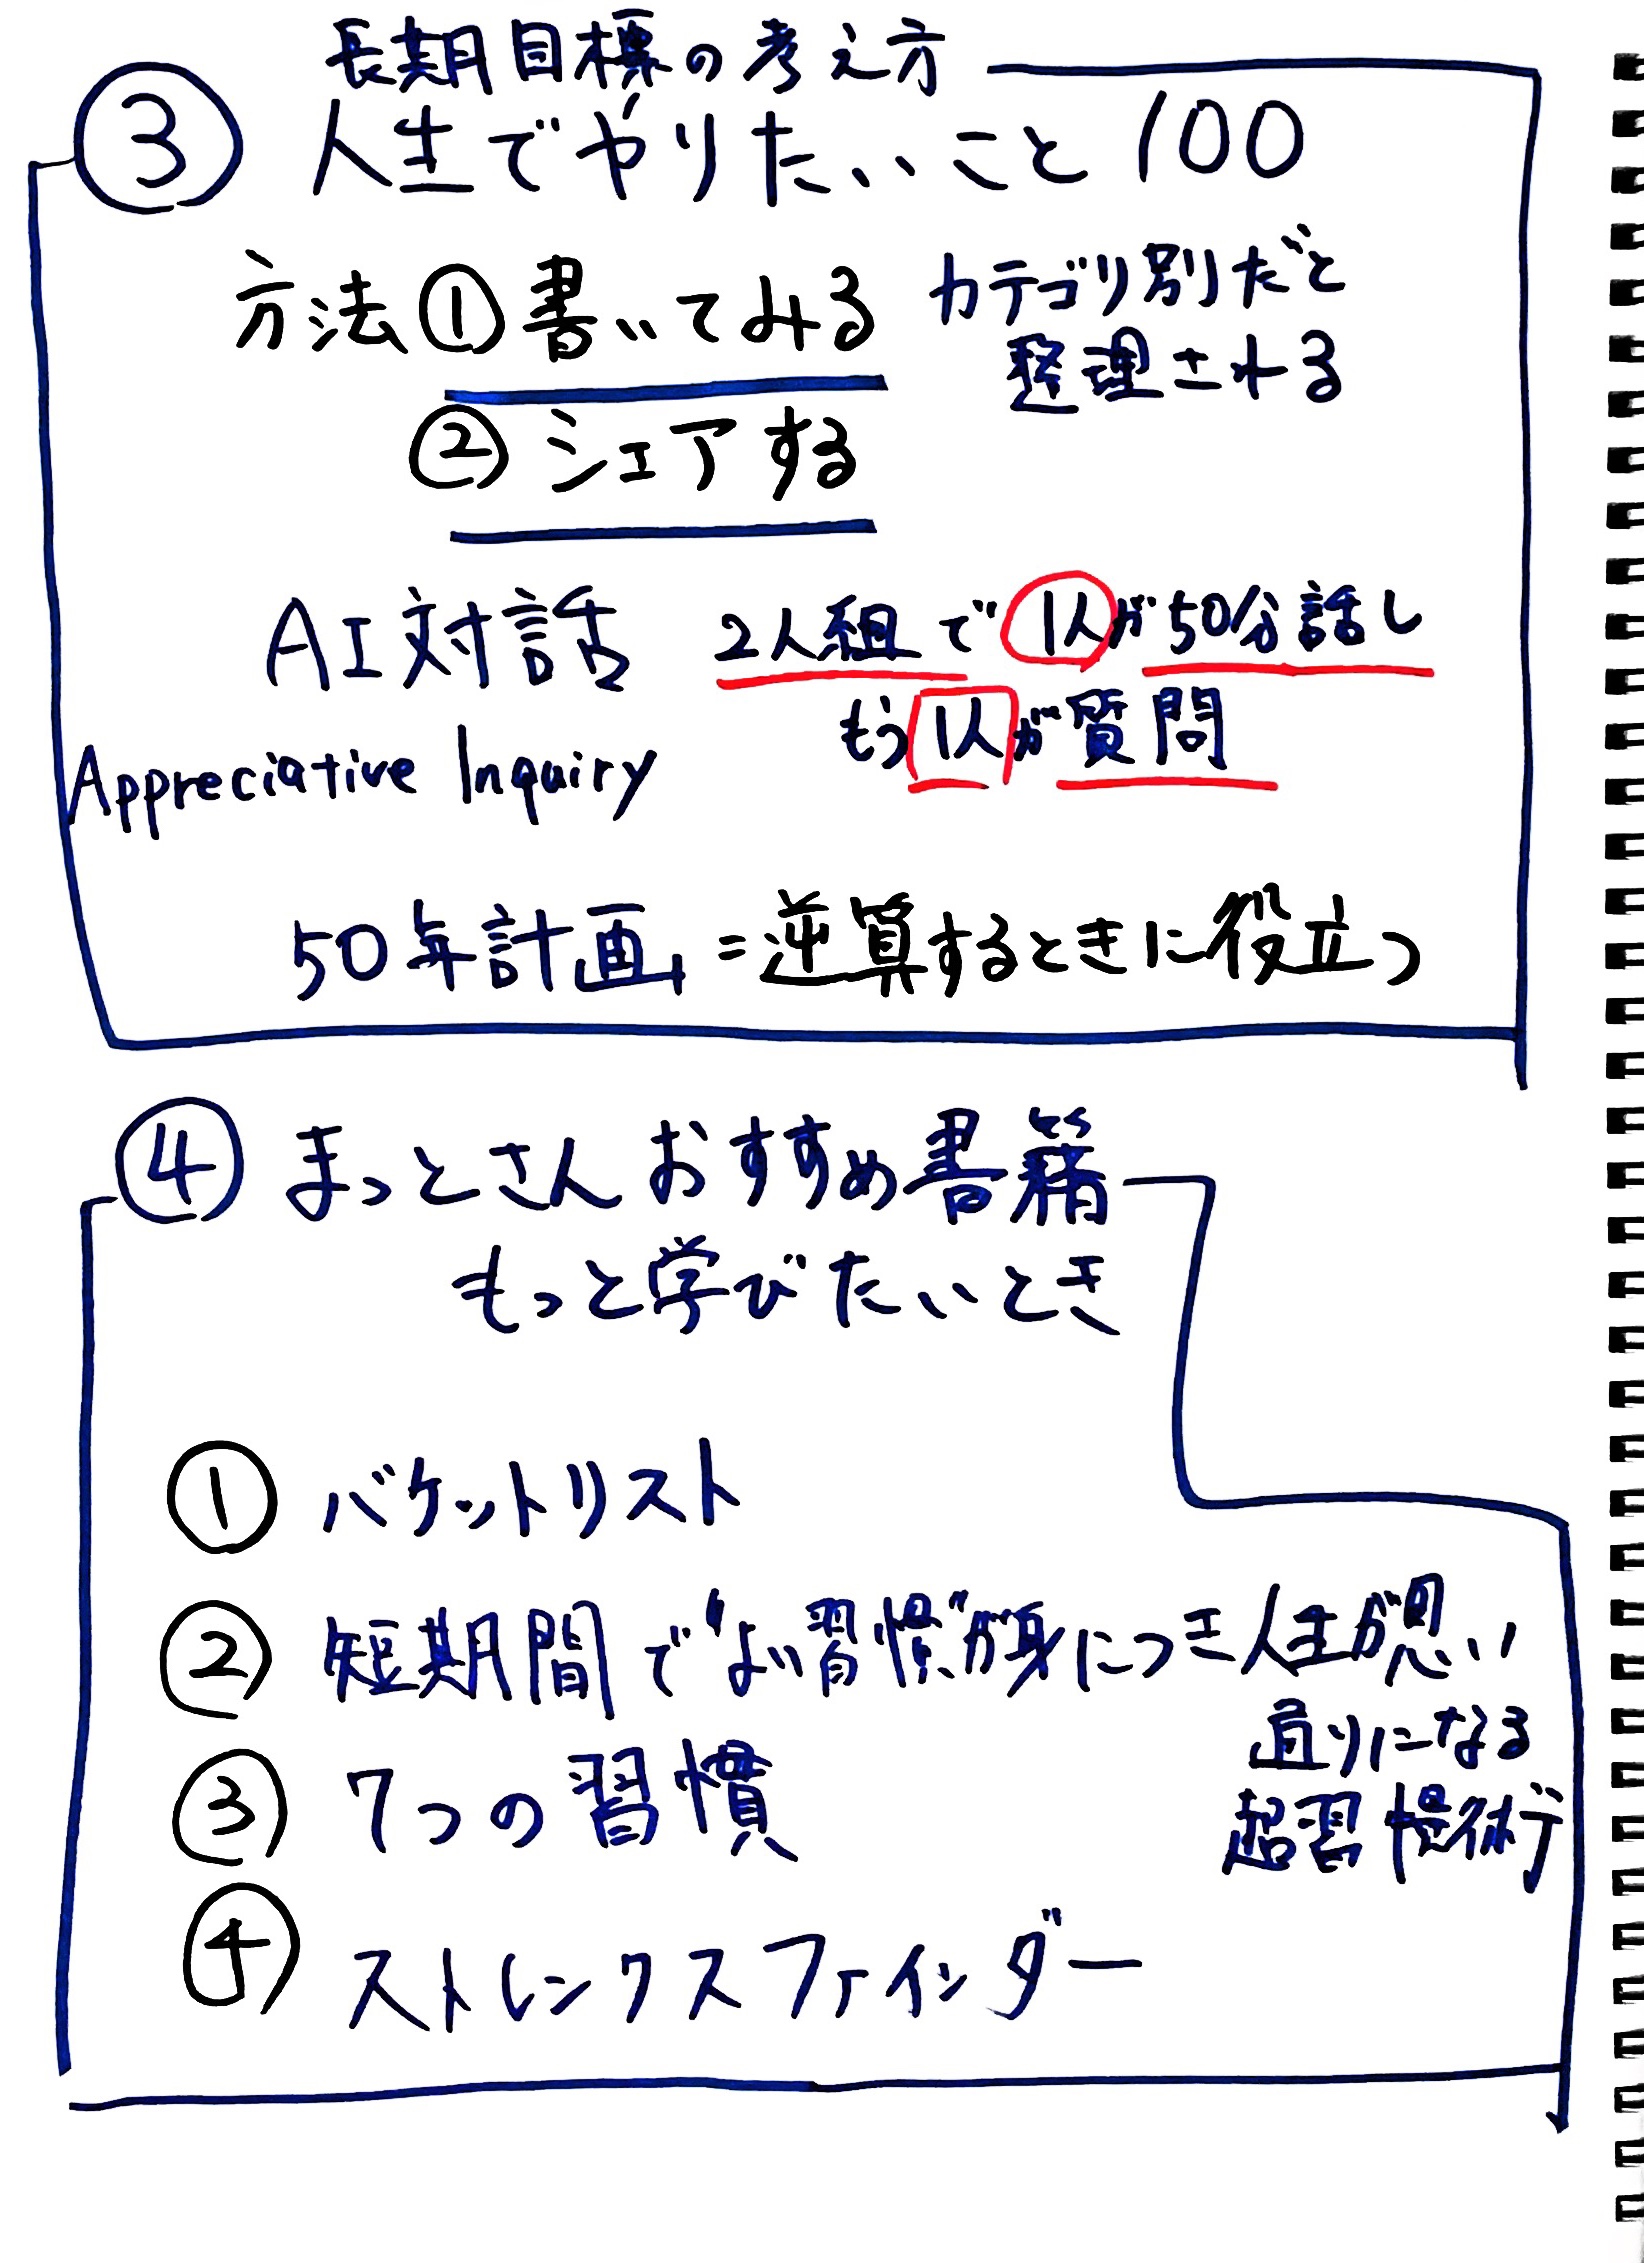 長期目標の考え方
③ 人生でやりたいこと100
方法 ① 書いてみる
カテゴリ別だと
整理される
② シェアする
AI対話
2人組で1人が50分話し
もう1人が質問
Appreciative Inquiry
50年計画 = 逆算するときに役立つ
④ まっとさん おすすめ書籍
もっと学びたいとき
① バケットリスト
② 短期間で“よい習慣”が身につき人生が思い
直りになる
超習慣術
③ 7つの習慣
④ ストレンクスファインダー